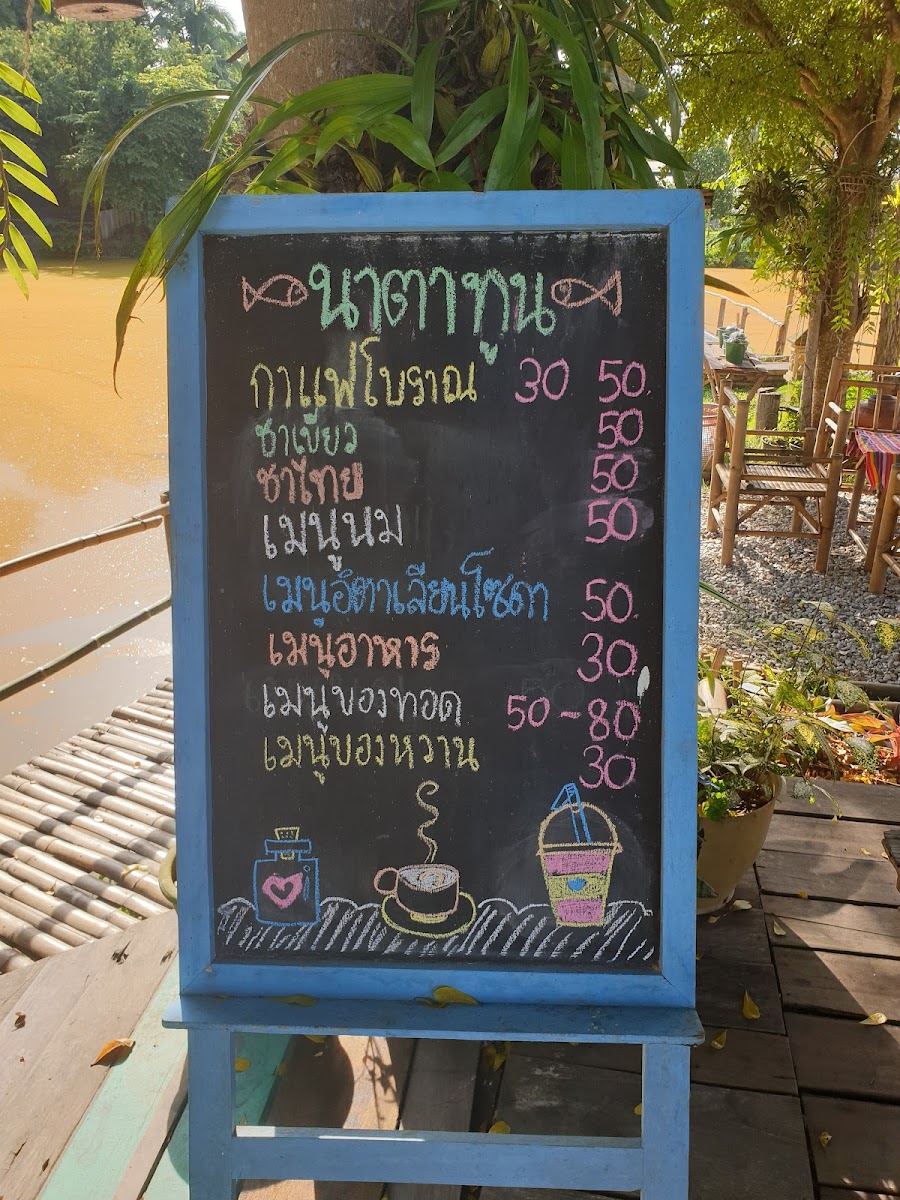 นาตาทูน
กาแฟโบราณ 30 50
ชาเขียว 50
ชาไทย 50
เมนูนม 50
เมนูอิตาเลียนโซดา 50
เมนูอาหาร 30
เมนูของทอด 50-80
เมนูของหวาน 30